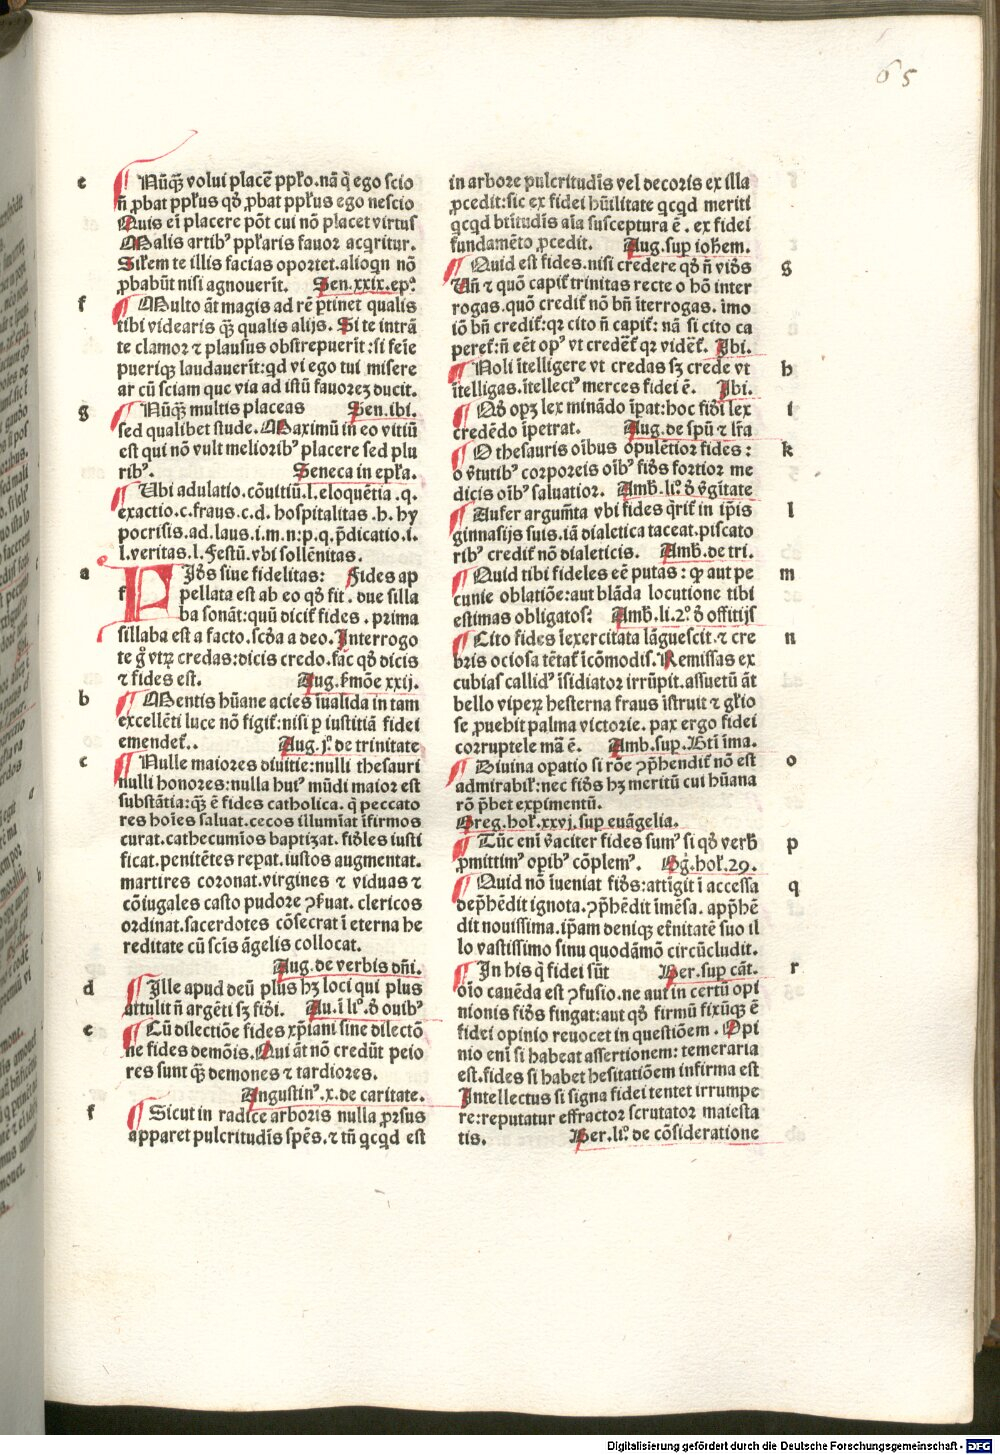 65
e
Nūq̄ȝ volui placē ppło.nā q̄ ego scio
n̄ ꝓbat ppłus qð ꝓbat ppłus ego nescio
Quis ei placere pōt cui nō placet virtus
Malis artibꝰ ppłaris fauor acq̄ritur.
Siłem te illis facias oportet.alioqn nō
ꝓbabūt nisi agnouerīt. Sen.xxix.epꝰ.
f
Multo āt magis ad rē ꝑtinet qualis
tibi videaris qȝ̄ qualis alijs. Si te intrā
te clamor ⁊ plausus obstrepuerīt:si feīe
pueriqȝ laudauerīt:qd vi ego tui misere
ar cū sciam que via ad istū fauoreȝ ducit.
g
Nūq̄ȝ multis placeas Sen.ibi.
sed qualibet stude. Maximū in eo vitiū
est qui nō vult melioribꝰ placere sed plu
ribꝰ. Seneca in epła.
Vbi adulatio.cōuitiū.l.eloquētia .q.
exactio.c.fraus.c.d. hospitalitas .h. hy
pocrisis.ad.laus.i.m.n:p.q.p̄dicatio.i.
l.veritas.l.Festū.vbi sollēnitas.
a
f
FJðs siue fidelitas: Fides ap
pellata est ab eo qð fit . due silla
ba sonāt:quū dicit̄ fides . prima
sillaba est a facto.scða a deo.Interrogo
te g̊ vtrꝝ credas:dicis credo.fac qð dicis
⁊ fides est. Aug.ẜmōe xxij.
b
Mentis hūane acies īualida in tam
excellēti luce nō figit̄:nisi ꝑ iustitiā fidei
emendet̄.. Aug.j.º de trinitate
c
Nulle maiores diuitie:nulli thesauri
nulli honores:nulla huiꝰ mūdi maior est
substātia:qȝ̄ ē fides catholica.q̄ peccato
res hoīes saluat.cecos illumīat īfirmos
curat.cathecumīos baptiȝat.fiðles iusti
ficat.penitētes repat.iustos augmentat.
martires coronat.virgines ⁊ viduas ⁊
cōiugales casto pudore ꝯẜuat. clericos
ordinat.sacerdotes cōsecrat ī eterna he
reditate cū scīs āgelis collocat.
Aug.de verbis dn̄i.
d
Ille apud deū plus hȝ loci qui plus
attulit n̄ argēti sȝ fiði. Au.ī li.º.ð ouibꝰ
e
Cū dilectiōe fides xp̄iani sine dilectō
ne fides demōis.Qui āt nō credūt peio
res sunt qȝ̄ demones ⁊ tardiores.
Augustinꝰ.x.de caritate.
f
Sicut in radice arboris nulla ꝓrsus
apparet pulcritudīs spēs.⁊ tn̄ qcqd est
in arbore pulcritudīs vel decoris ex illa
ꝓcedit:sic ex fidei hūilitate qcqd meriti
qcqd bīītudīs aīa susceptura ē. ex fidei
fundamēto ꝓcedit. Aug.sup iohem.
g
Quid est fides.nisi credere qð n̄ viðs
Un̄ ⁊ quō capit̄ trinitas recte o hō inter
rogas.quō credit̄ nō bn̄ īterrogas. īmo
iō bn̄ credit̄:qꝛ cito n̄ capit̄: nā si cito ca
peret̄:n̄ eēt opꝰ vt credēt̄ qꝛ vidēt̄. Ibi.
h
Noli ītelligere vt credas sȝ crede vt
ītelligas.ītellectꝰ merces fidei ē. Ibi.
i
Qð opȝ lex minādo īpat:hoc fiði lex
credēdo īpetrat. Aug.de spū ⁊ lr̄a
k
O thesauris oībus opulētior fides :
o v̄tutibꝰ corporeis oībꝰ fiðs fortior me
dicis oībꝰ saluatior. Amb.li.º ð v̄gītate
l
Aufer argum̄ta vbi fides q̄rit̄ in ip̄is
ginnasijs suis.iā dialetica taceat.piscato
ribꝰ credit̄ nō dialeticis. Amb.de tri.
m
Quid tibi fideles eē putas: qꝫ aut pe
cunie oblatiōe:aut blāda locutione tibi
estimas obligatos: Amb.li.2.º ð offitijs
n
Cito fides īexercitata lāguescit.⁊ cre
bris ociosa tētat̄ īcōmodis.Remissas ex
cubias callidꝰ īsidiator irrūpit.assuetū āt
bello viperȝ hesterna fraus īstruit ⁊ głio
se ꝓuehit palma victorie. pax ergo fidei
corruptele mā ē. Amb.sup.Btī īma.
o
Diuina oꝑatio si rōe ꝯp̄hendit̄ nō est
admirabił:nec fiðs hȝ meritū cui hūana
rō p̄bet exꝑimentū.
Greg.hoł.xxvj.sup euāgelia.
p
Tūc enī v̄aciter fides sumꝰ si qð verb
ꝓmittimꝰ opibꝰ cōplemꝰ. Gg̊.hoł.29.
q
Quid nō īueniat fiðs:attīgit ī accessa
dep̄hēdit ignota.ꝯp̄hēdit īmēsa. app̄hē
dit nouissima.ip̄am deniqȝ et̄nitatē suo il
lo vastissimo sinu quodāmō circūcludit.
r
In his q̄ fidei sūt Ber.sup cāt.
oīo cauēda est ꝯfusio.ne aut in certū opi
nionis fiðs fingat:aut qð firmū fixūqȝ ē
fidei opinio reuocet in questiōem . Opi
nio enī si habeat assertionem: temeraria
est.fides si habet hesitatiōem infirma est
Intellectus si signa fidei tentet irrumpe
re:reputatur effractor scrutator maiesta
tis. Ber.li.º de cōsideratione
Digitalisierung gefördert durch die Deutsche Forschungsgemeinschaft - DFG